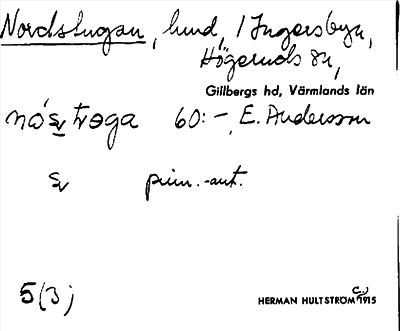 Nordstugan, lund, i Ingersbyn,
Högeruds sn,
Gillbergs hd, Värmlands län
60:-, E. Andersson
prim.-ant.
5(3)
HERMAN HULTSTRÖM 1915